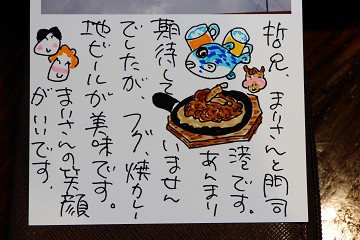 哲兄、まりさんと門司
港です。あんまり
期待していません
でしたが フグ、焼カレー
地ビールが美味です。
まりさんの笑顔
がいいです。